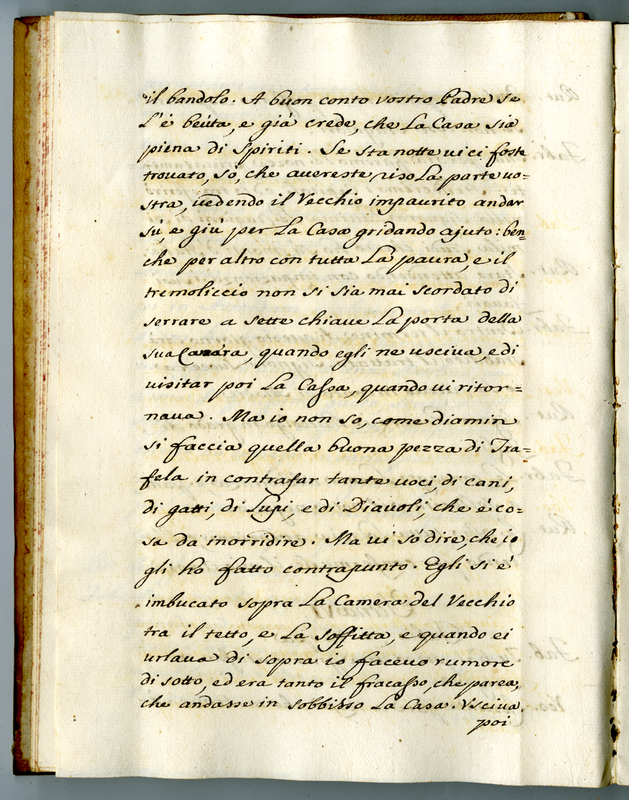 il bandolo. A buon conto vostro Padre se
l'é beúta, e giá crede, che la Casa sia
piena di Spiriti. Se sta notte vi ci foste
trovato, só, che avereste riso la parte vo=
stra, vedendo il Vecchio impaurito andar
sú, e giú per la Casa gridando ajuto: ben=
che per altro con tutta la paura, e il
tremoliccio non si sia mai scordato di
serrare a sette chiave la porta della
sua Camára, quando egli ne usciva, e di
visitar poi la Cassa, quando vi ritor=
nava. Ma io non so, come diamin
si faccia quella buona pezza di Tra=
fela in contrafar tante voci, di cani,
di gatti, di Lupi, e di Diavoli, che é co=
sa da inorridire. Ma vi só dire, che io
gli ho fatto contrapunto. Egli si é
imbucato sopra la Camera del Vecchio
tra il tetto, e la soffitta, e quando ei
urlava di sopra io facevo rumore
di sotto, ed era tanto il fracasso, che parea,
che andasse in sobbisso la Casa. Usciva
poi